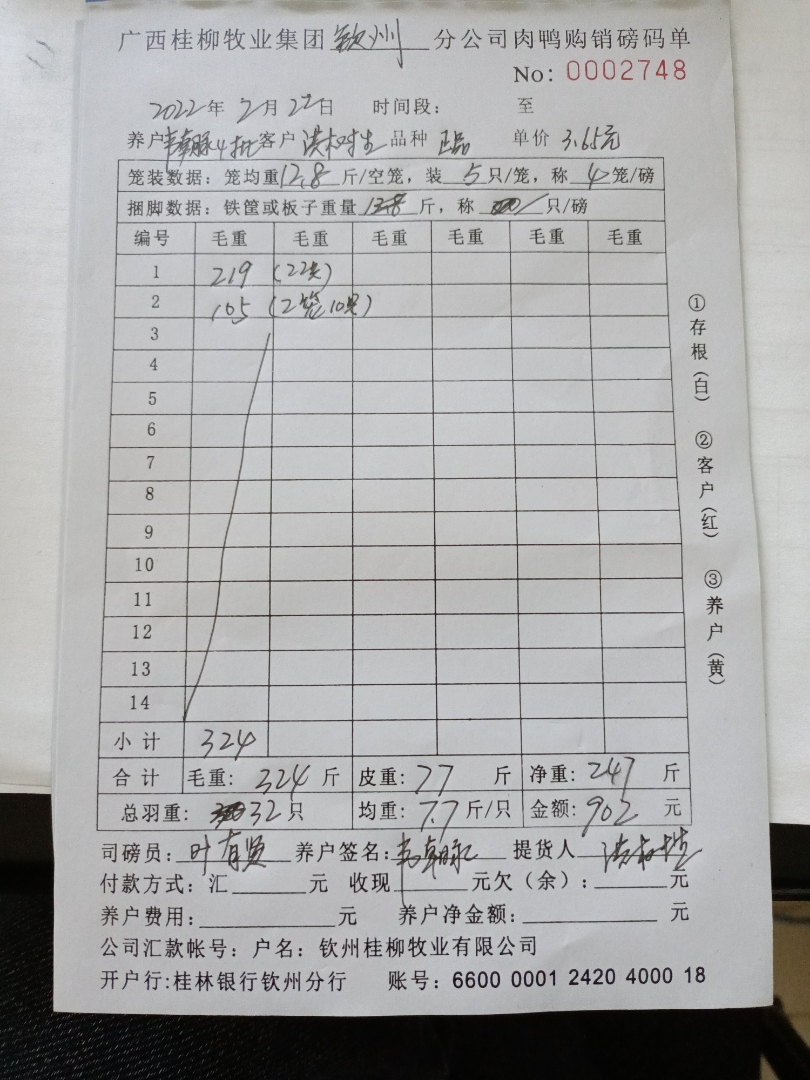 广西桂柳牧业集团 钦州 分公司肉鸭购销磅码单
No: 0002748
2022年2月22日 时间段: 至
养户 韦朝脉4批 客户 洪树生 品种 正品 单价 3.65元
笼装数据: 笼均重12.8斤/空笼, 装5只/笼, 称4笼/磅
捆脚数据: 铁筐或板子重量 斤, 称 只/磅
编号 毛重 毛重 毛重 毛重 毛重 毛重
1 219 (22只)
2 105 (2笼10只)
3
4
5
6
7
8
9
10
11
12
13
14
小计 324
合计 毛重: 324斤 皮重: 77斤 净重: 247斤
总羽重: 32只 均重: 7.7斤/只 金额: 902元
司磅员: 叶有贤 养户签名: 韦朝脉 提货人
付款方式: 汇 元 收现 元欠(余): 元
养户费用: 元 养户净金额: 元
公司汇款帐号: 户名: 钦州桂柳牧业有限公司
开户行:桂林银行钦州分行 账号: 6600 0001 2420 4000 18
①存根(白) ②客户(红) ③养户(黄)